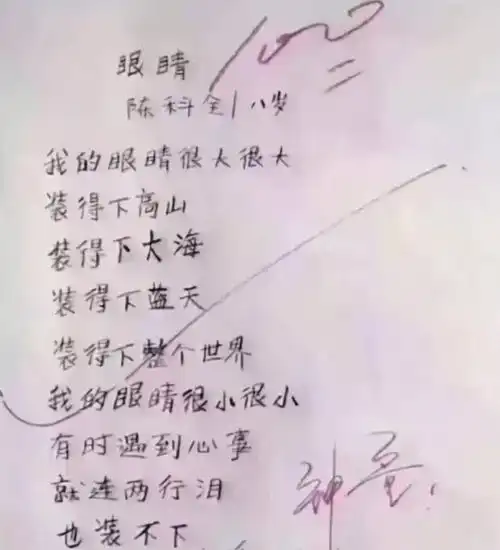 眼睛
100
陈科全/八岁
我的眼睛很大很大
装得下高山
装得下大海
装得下蓝天
装得下整个世界
我的眼睛很小很小
有时遇到心事
就连两行泪
也装不下
神童!